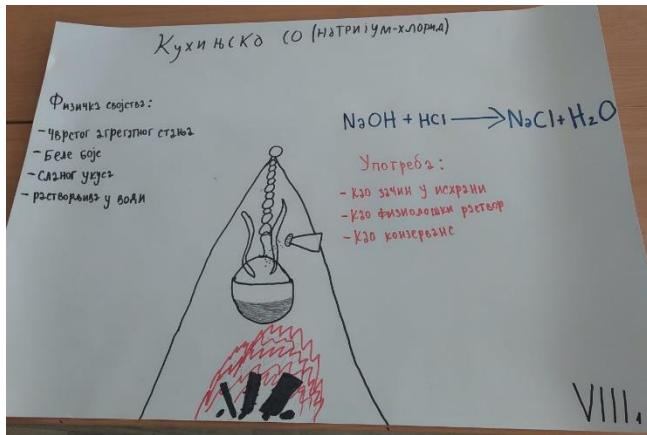 Кухињска со (натријум-хлорид)
Физичка својства:
-Чврстог агрегатног стања
-Беле боје
-Сланог укуса
-растворљива у води
NaOH + HCl → NaCl + H₂O
Употреба:
-као зачин у исхрани
-као физиолошки раствор
-као конзерванс
VIII₁